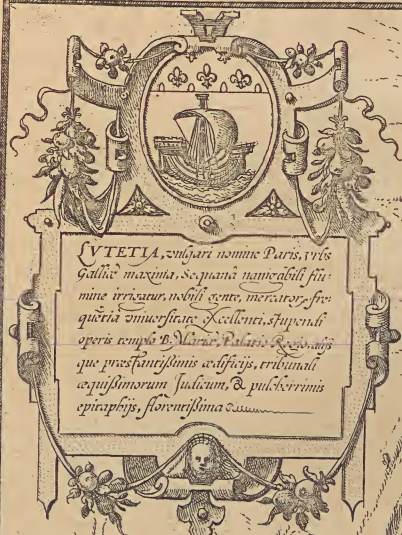 LVTETIA, vulgari nomine Paris, vrbs
Galliæ maxima, Sequanâ nauigabili flu
mine irrigatur, nobili gente, mercator, fre
quẽtia vniuersitate excellenti, stupendi
operis templo B. Mariæ, Palatio Regio, alijs
que præstantißimis ædificijs, tribunali
æquißimorum Judicum, & pulcherrimis
epitaphijs, florentißima